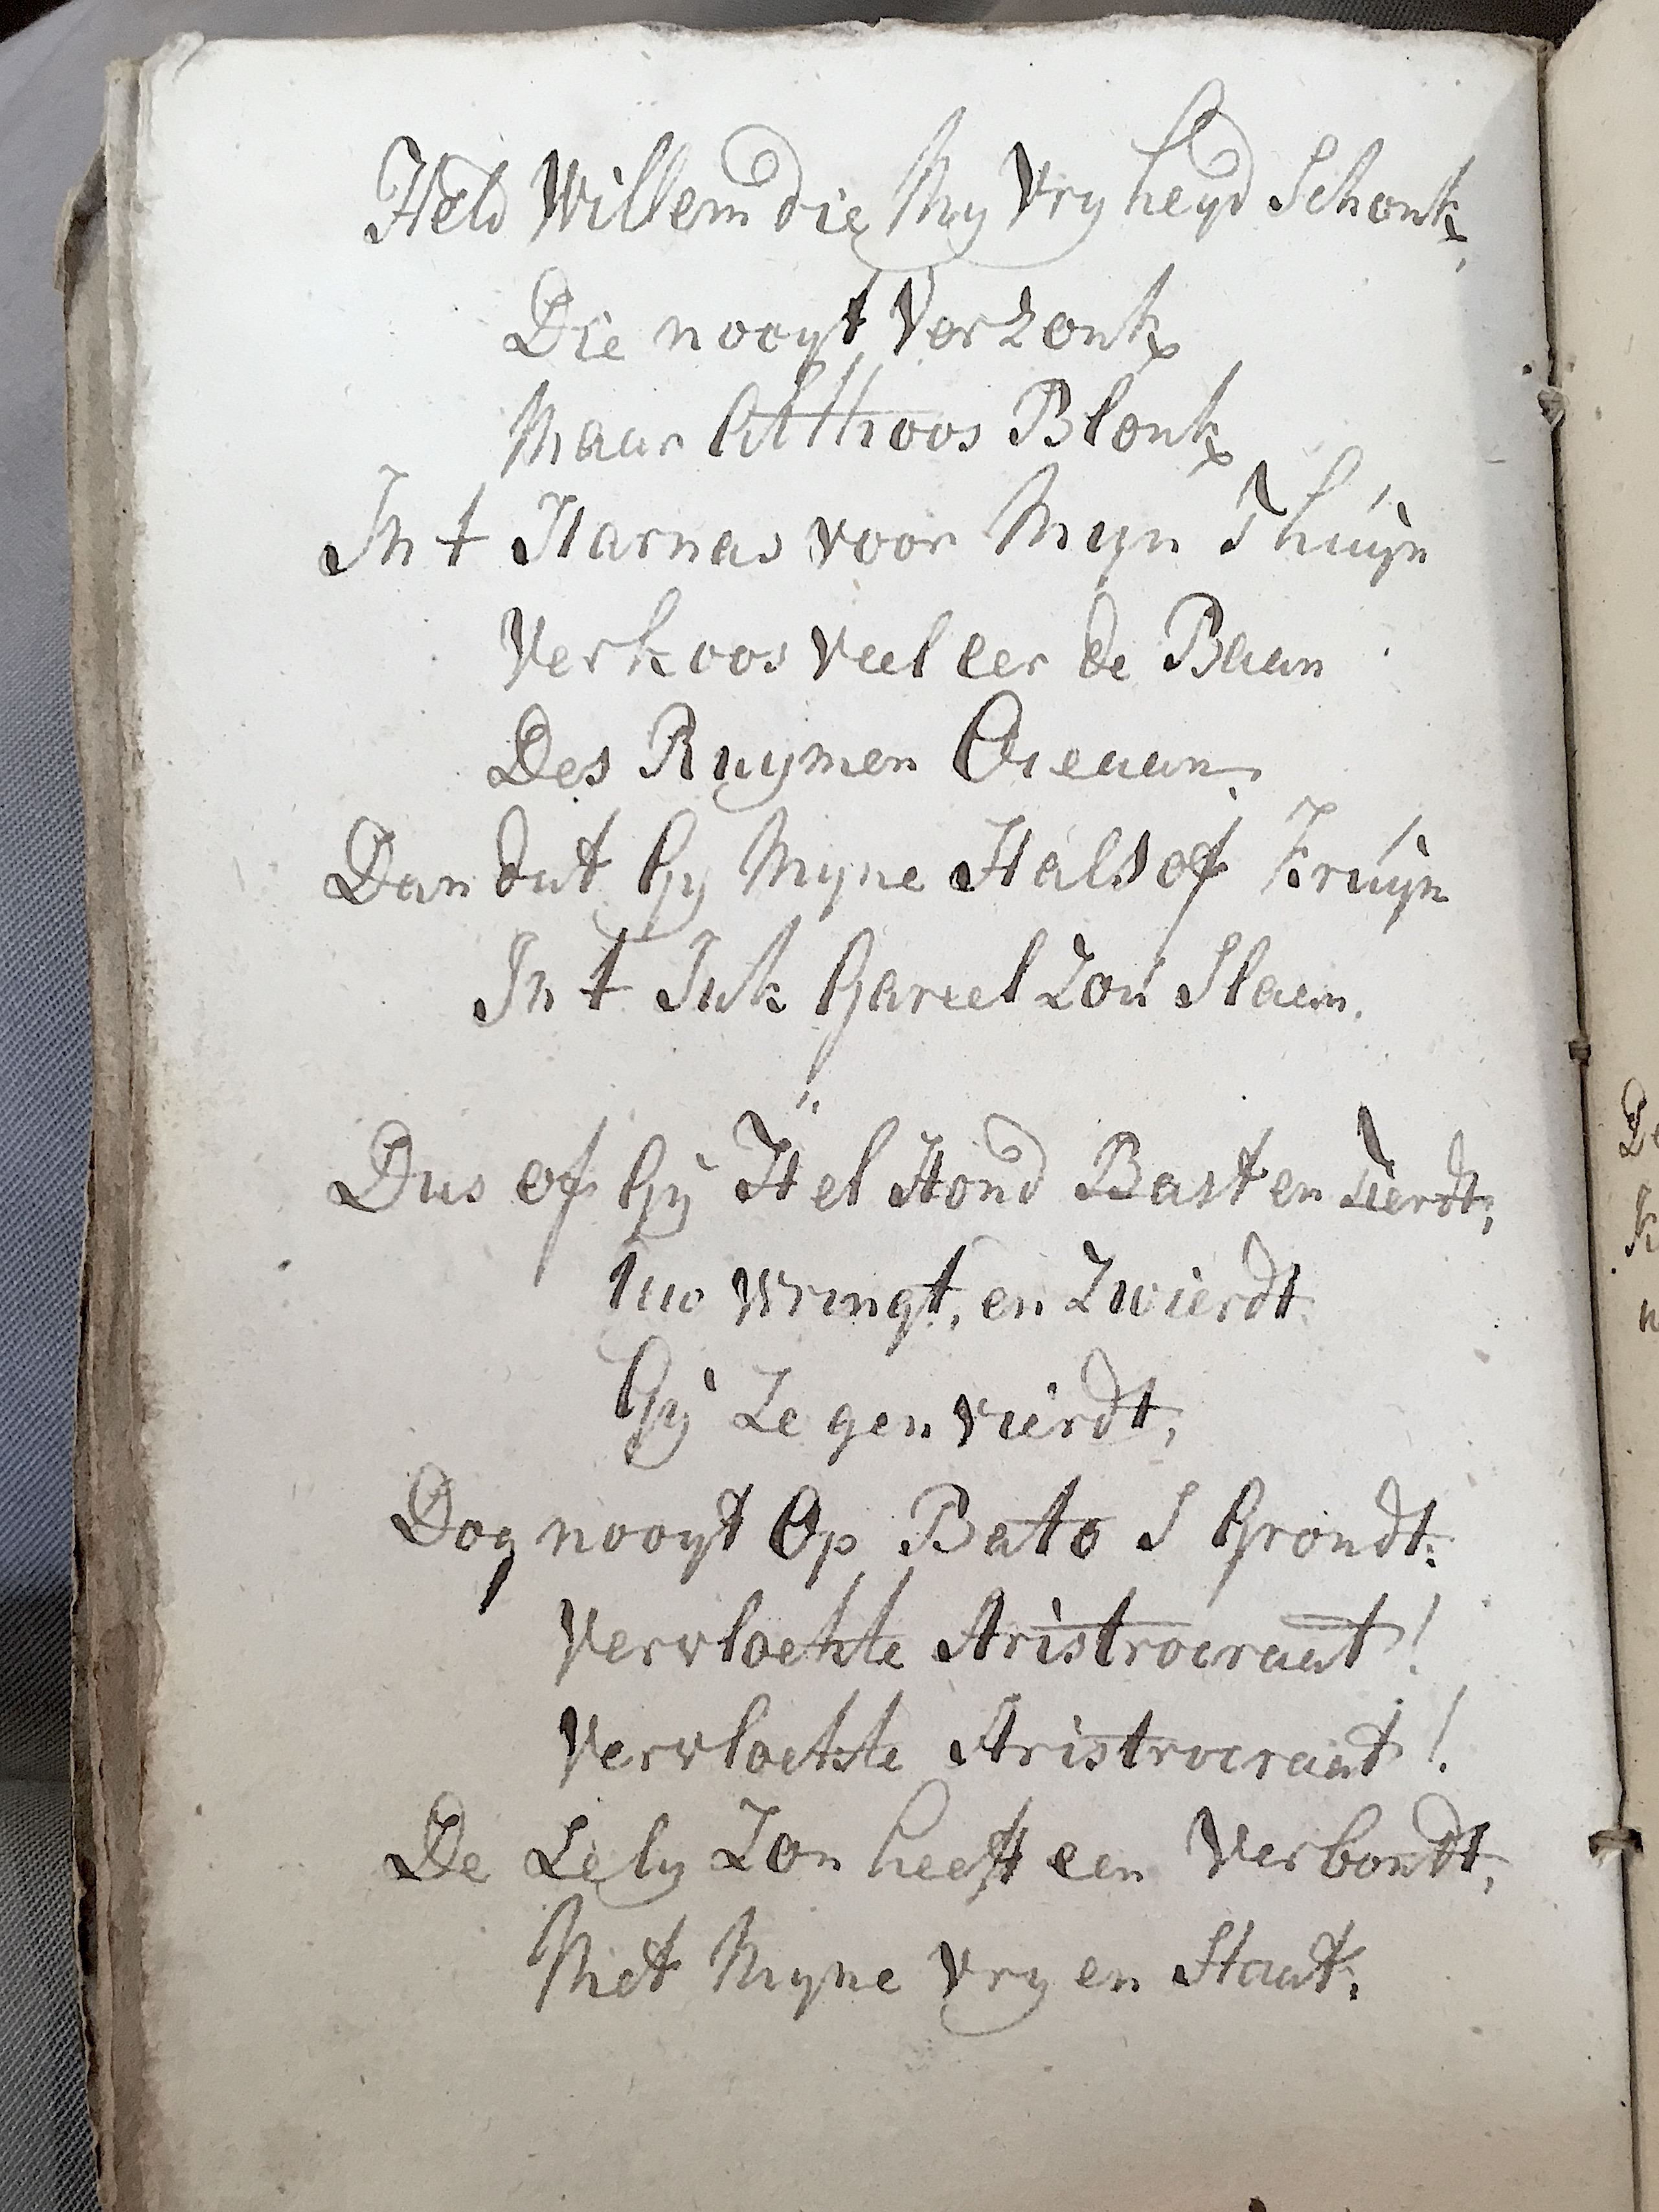 Held Willem die My Vryheyd Schonk,
Die nooyt Verzonk
Maar Althoos Blonk
In t Harnas voor Myn Thuyn
Verkoos veel eer de Baan
Des Ruymen Oceaan,
Dan dat Gy Myne Hals of Kruyn
In t Juk Gareel Zou Slaen.
Dus of Gÿ Hel Hond Bast en Tierdt;
Uw wringt, en Zwierdt
Gÿ Zegenvierdt,
Dog nooyt Op Bato S Grondt:
Vervloekte Aristrocraat!
Vervloekte Aristrocraat!
De Lely Zon heeft een Verbondt,
Met Myne Vryen Staat;